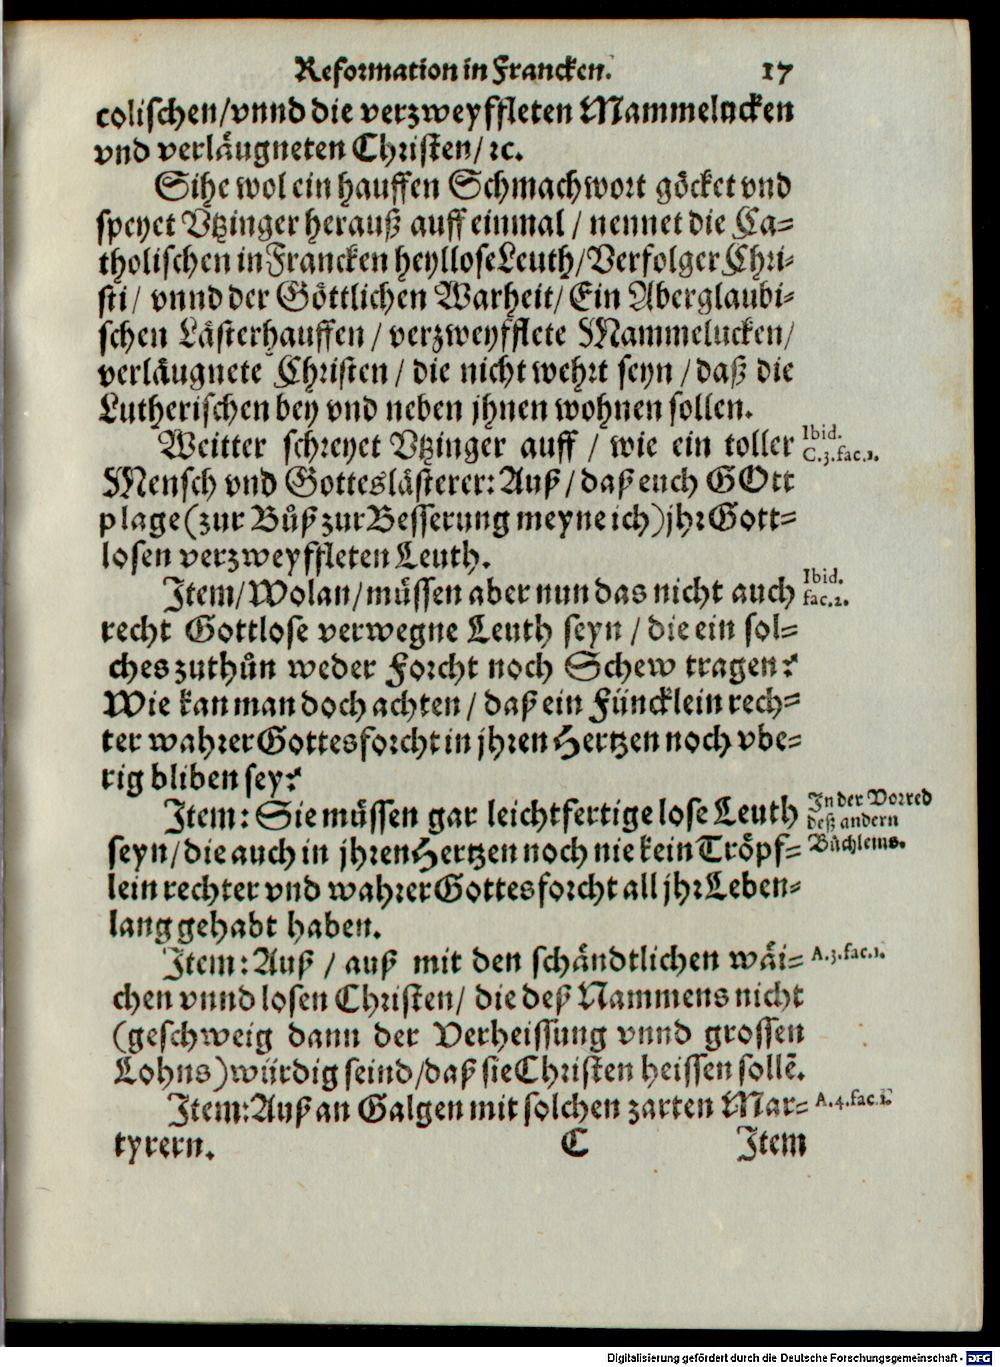 Reformation in Francken. 17
colischen/vnnd die verzweyffleten Mammelucken
vnd verläugneten Christen/ ꝛc.
Sihe wol ein hauffen Schmachwort göcket vnd
speyet Vtzinger herauß auff einmal / nennet die Ca=
tholischen in Francken heyllose Leuth/Verfolger Chri=
sti/ vnnd der Göttlichen Warheit/ Ein Aberglaubi=
schen Lästerhauffen / verzweyfflete Mammelucken/
verläugnete Christen / die nicht wehrt seyn / daß die
Lutherischen bey vnd neben jhnen wohnen sollen.
Weitter schreyet Vtzinger auff / wie ein toller
Ibid.
C.3.fac.1.
Mensch vnd Gotteslästerer: Auß / daß euch GOtt
plage (zur Bůß zur Besserung meyne ich) jhr Gott=
losen verzweyffleten Leuth.
Item/Wolan/müssen aber nun das nicht auch
Ibid.
fac.2.
recht Gottlose verwegne Leuth seyn / die ein sol=
ches zuthůn weder Forcht noch Schew tragen?
Wie kan man doch achten / daß ein Füncklein rech=
ter wahrer Gottesforcht in jhren Hertzen noch vbe=
rig bliben sey?
Item: Sie müssen gar leichtfertige lose Leuth
In der Vorred
deß andern
Büchleins.
seyn/die auch in jhren Hertzen noch nie kein Tröpf=
lein rechter vnd wahrer Gottesforcht all jhr Leben=
lang gehabt haben.
Item: Auß / auß mit den schändtlichen wäi=
A.3.fac.1.
chen vnnd losen Christen/ die deß Nammens nicht
(geschweig dann der Verheissung vnnd grossen
Lohns) würdig seind/daß sie Christen heissen sollē.
Item: Auß an Galgen mit solchen zarten Mar=
A.4.fac.1.
tyrern. C Item
Digitalisierung gefördert durch die Deutsche Forschungsgemeinschaft - DFG